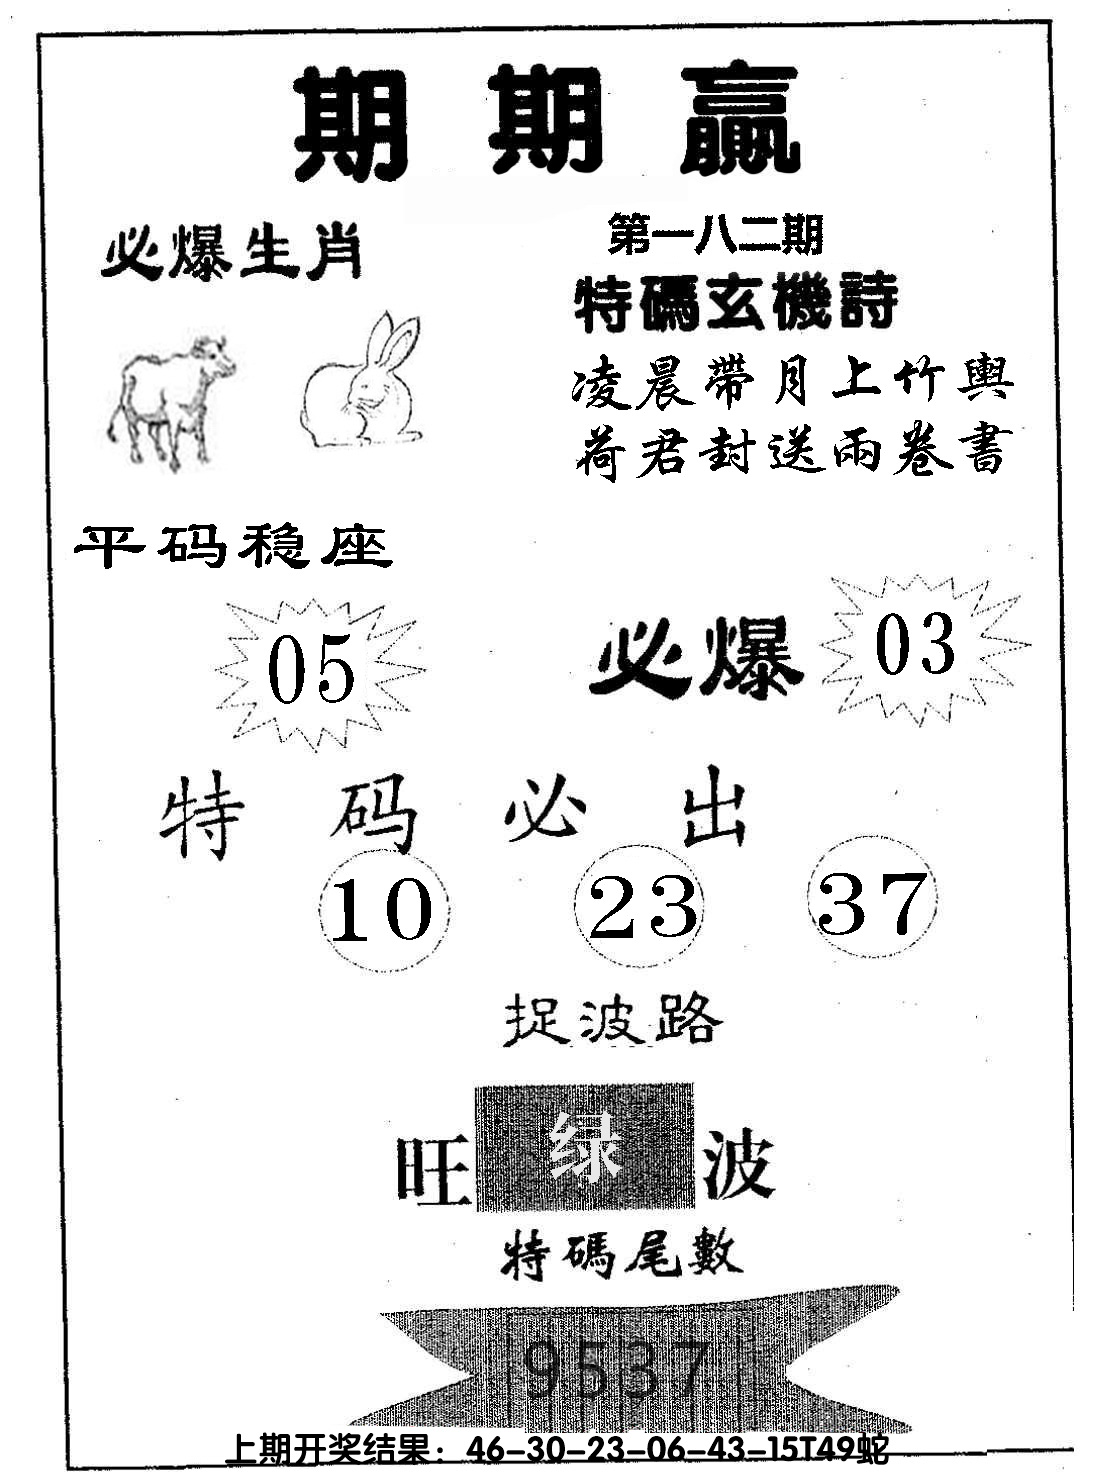 期期赢
必爆生肖
第一八二期
特碼玄機詩
凌晨帶月上竹輿
荷君封送兩卷書
平码稳座
05
必爆 03
特码必出
10 23 37
捉波路
旺 绿 波
特碼尾數
9537
上期开奖结果：46-30-23-06-43-15T49蛇